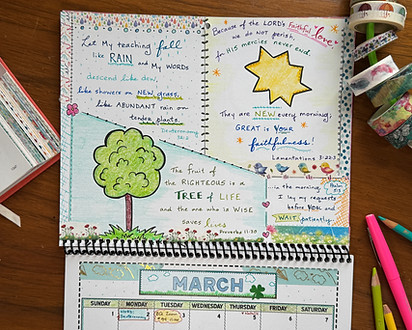 Let My teaching fall
like RAIN and My WORDS
descend like dew,
like showers on NEW grass,
like ABUNDANT rain on
tender plants.
Deuteronomy
32:2
Because of the LORD's Faithful love
we do not perish,
for HIS mercies never end.
They are NEW every morning;
GREAT is YOUR
faithfulness!
Lamentations 3:22-3
The fruit of
the RIGHTEOUS is a
TREE of LIFE
and the one who is WISE
saves lives
Proverbs 11:30
...in the morning,
Psalm
5:3
I lay my requests
before YOU and
WAIT patiently.
MARCH
SUNDAY MONDAY TUESDAY WEDNESDAY THURSDAY FRIDAY SATURDAY
1 2 3 4 5 6 7